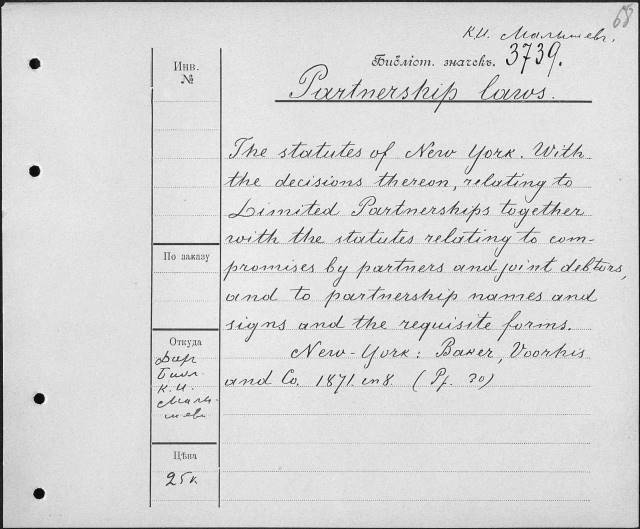 68
К.И. Малышевъ.
Инв. №
Библіот. значекъ. 3739.
Partnership laws.
The statutes of New York. With
the decisions thereon, relating to
Limited Partnerships together
with the statutes relating to com-
promises by partners and joint debtors,
and to partnership names and
signs and the requisite forms.
New-York: Baker, Voorhis
and Co. 1871. in 8. (Pf. 30)
По заказу
Откуда
Дар
Библ.
К.И.
Малы-
шева
Цѣна
25к.